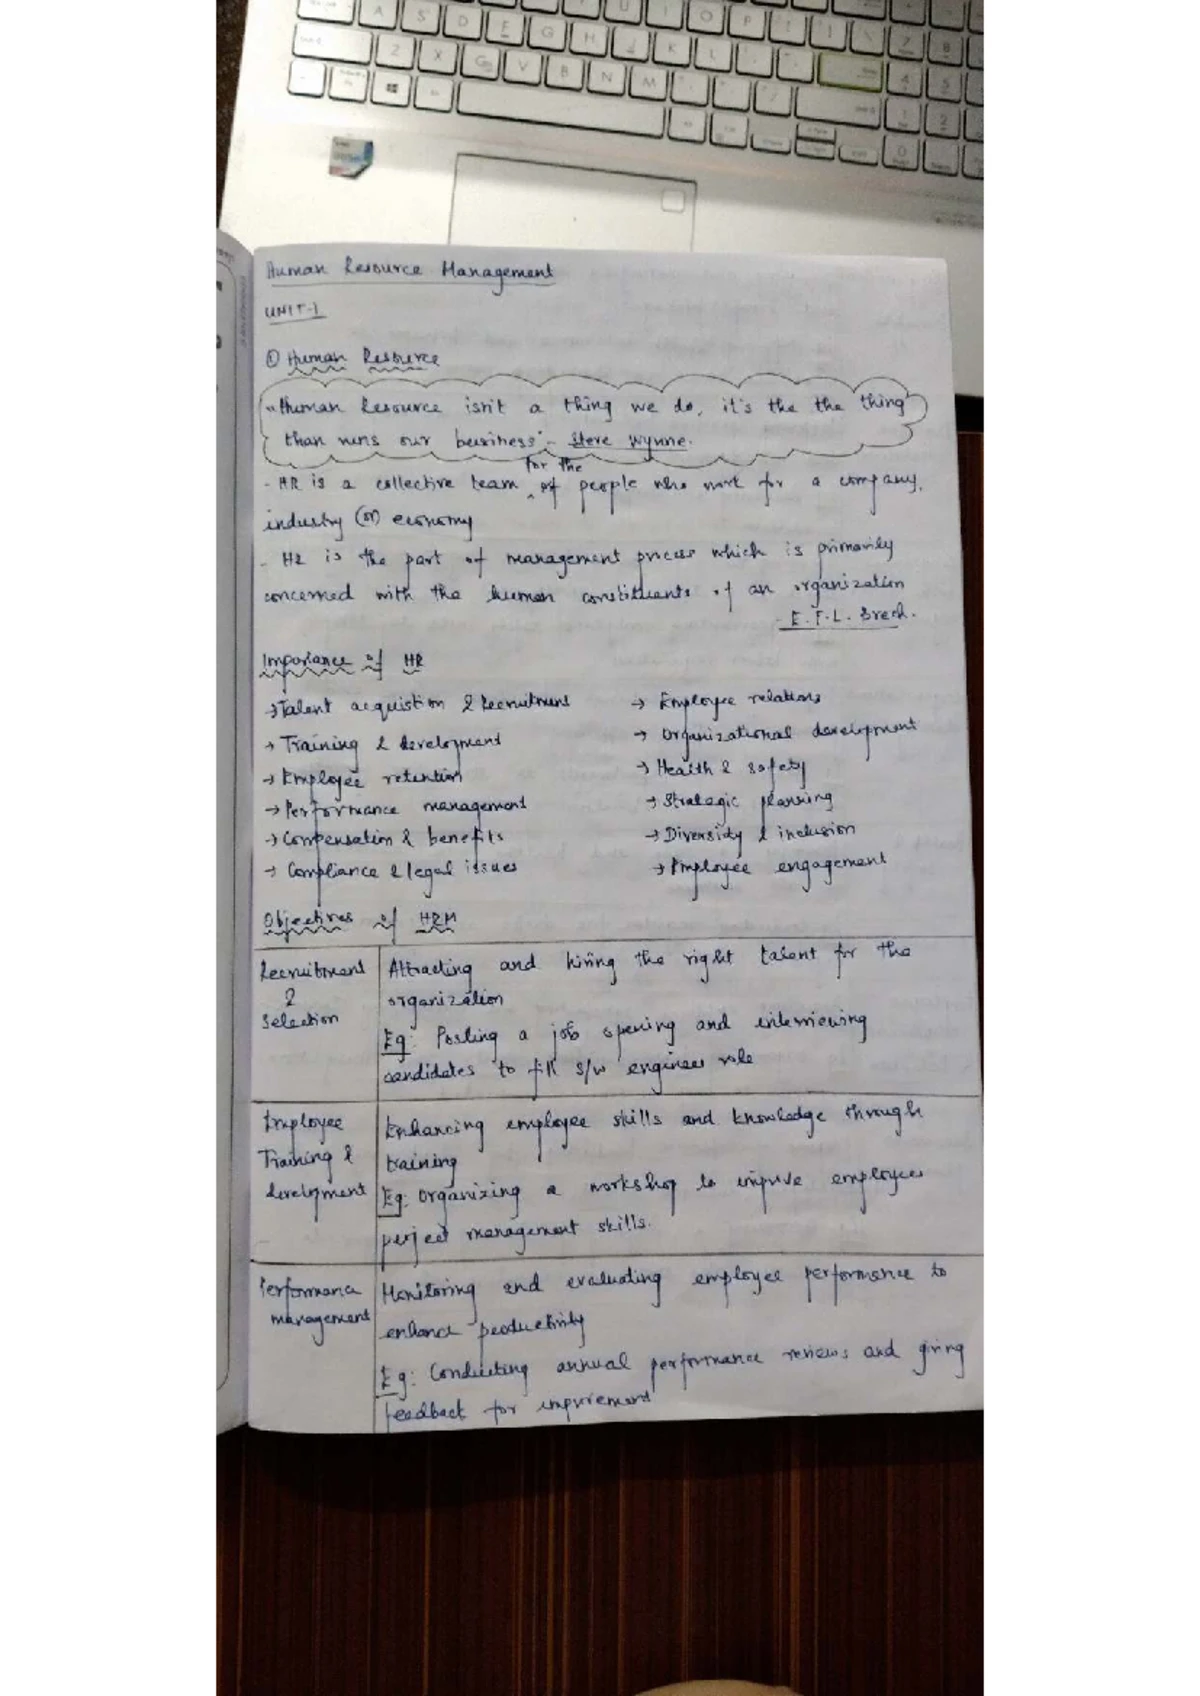 Human Resource Management
UNIT-1
① Human Resource
"Human Resource isn't a thing we do, it's the the thing
than runs our business" - Steve Wynne.
for the
- HR is a collective team of people who work for a company,
industry (or) economy
- HR is the part of management process which is primarily
concerned with the human constituents of an organization
- E.F.L. Brech.
Importance of HR
→ Talent acquistion & Recruitment
→ Training & development
→ Employee retention
→ Performance management
→ Compensation & benefits
→ Compliance & legal issues
→ Employee relations
→ Organizational development
→ Health & safety
→ Strategic planning
→ Diversity & inclusion
→ Employee engagement
Objectives of HRM
Recruitment
&
Selection
Attracting and hiring the right talent for the
organization
Eg: Posting a job opening and interviewing
candidates to fill s/w engineer role
Employee
Training &
development
Enhancing employee skills and knowledge through
training
Eg: Organizing a workshop to improve employees
project management skills.
Performance
management
Monitoring and evaluating employee performance to
enhance productivity
Eg: Conducting annual performance reviews and giving
feedback for improvement